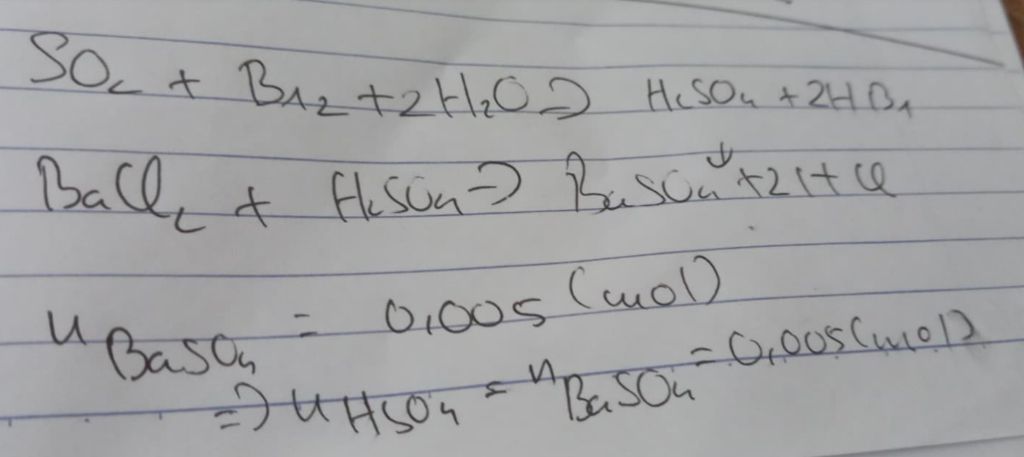 SO₂ + Br₂ + 2H₂O => H₂SO₄ + 2HBr
BaCl₂ + H₂SO₄ -> BaSO₄↓ + 2HCl
n BaSO₄ = 0,005 (mol)
=> n HSO₄ = n BaSO₄ = 0,005 (mol)